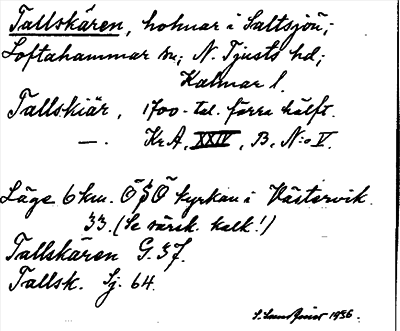 Tallskären, holmar i Saltsjön;
Loftahammar sn; N. Tjusts hd;
Kalmar l.
Tallskiär, 1700-tal. förra hälft.
—. Kr.A. XXIV, B, N:o V.
Läge 6 km. ÖSÖ kyrkan i Västervik.
33. (Se särsk. kalk!)
Tallskären G. 37.
Tallsk. Sj. 64.
S. 1936.